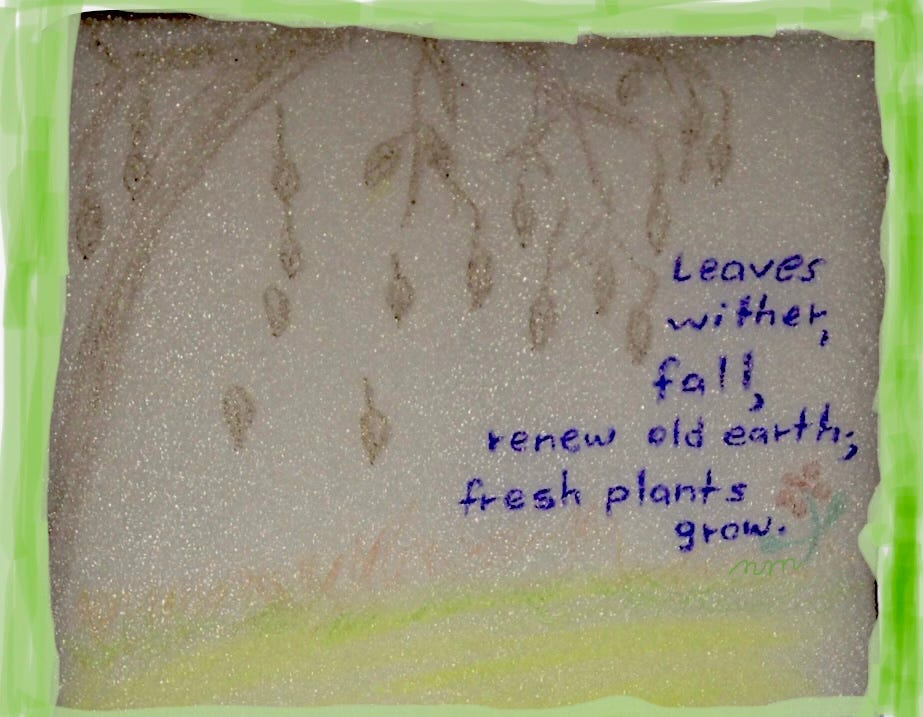 Leaves
wither,
fall,
renew old earth;
fresh plants
grow.
nm